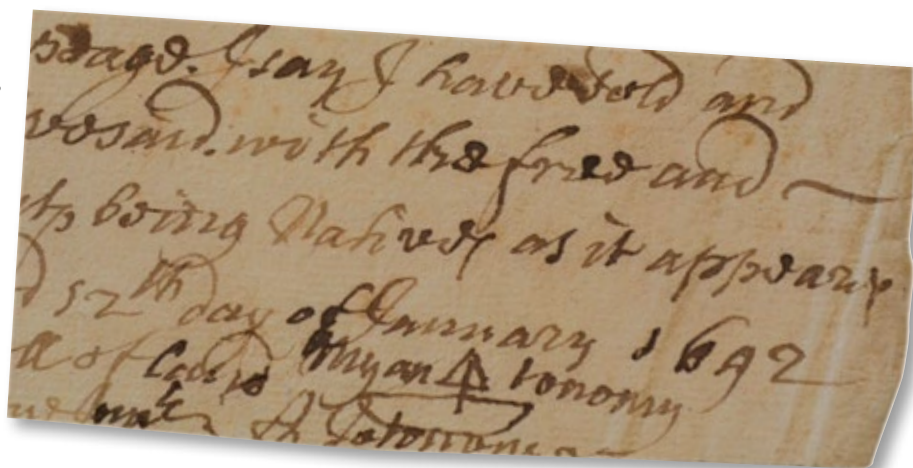 peage. I say I have sold and
vesaid. with the free and
being Natives as it appears
12th day of January 1692
a of Land Myan tonomy